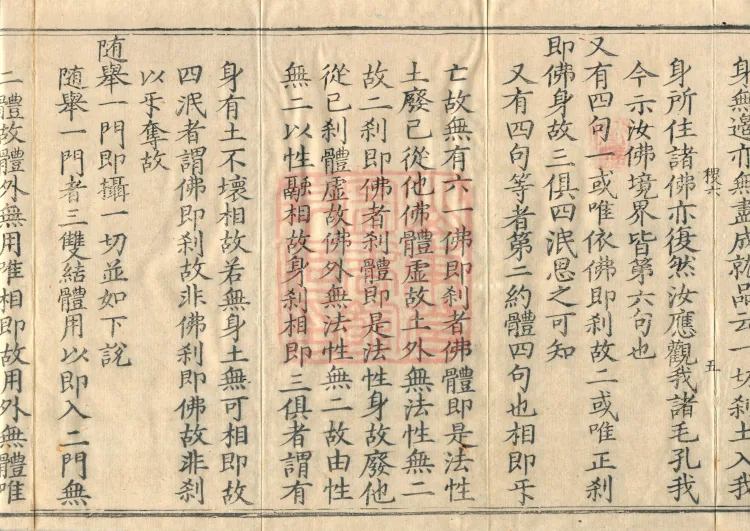 身無邊亦無盡成就品云一切剎土入我
身所住諸佛亦復然汝應觀我諸毛孔我
今示汝佛境界皆第六句也
又有四句一或唯依佛即刹故二或唯正刹
即佛身故三俱四泯思之可知
又有四句等者第二約體四句也相即乎
亡故無有六一佛即刹者佛體即是法性
土廢己從他佛體虛故土外無法性無二
故二刹即佛者刹體即是法性身故廢他
從己刹體虛故佛外無法性無二故由性
無二以性融相故身刹相即三俱者謂有
身有土不壞相故若無身土無可相即故
四泯者謂佛即刹故非佛刹即佛故非刹
以乎奪故
随舉一門即攝一切並如下說
随舉一門者三雙結體用以即入二門無
二體故體外無用唯相即故用外無體唯
五